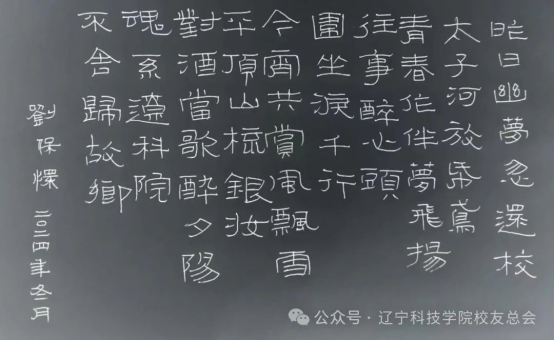 昨日幽夢忽還校
太子河放帋鳶
青春作伴夢飛揚
往事醉心頭
圍坐淚千行
今宵共賞風飄雪
平頂山梳銀妝
對酒當歌醉夕陽
魂系遼科院
不舍歸故鄉
劉保爍 二〇二四年冬月
公众号·辽宁科技学院校友总会